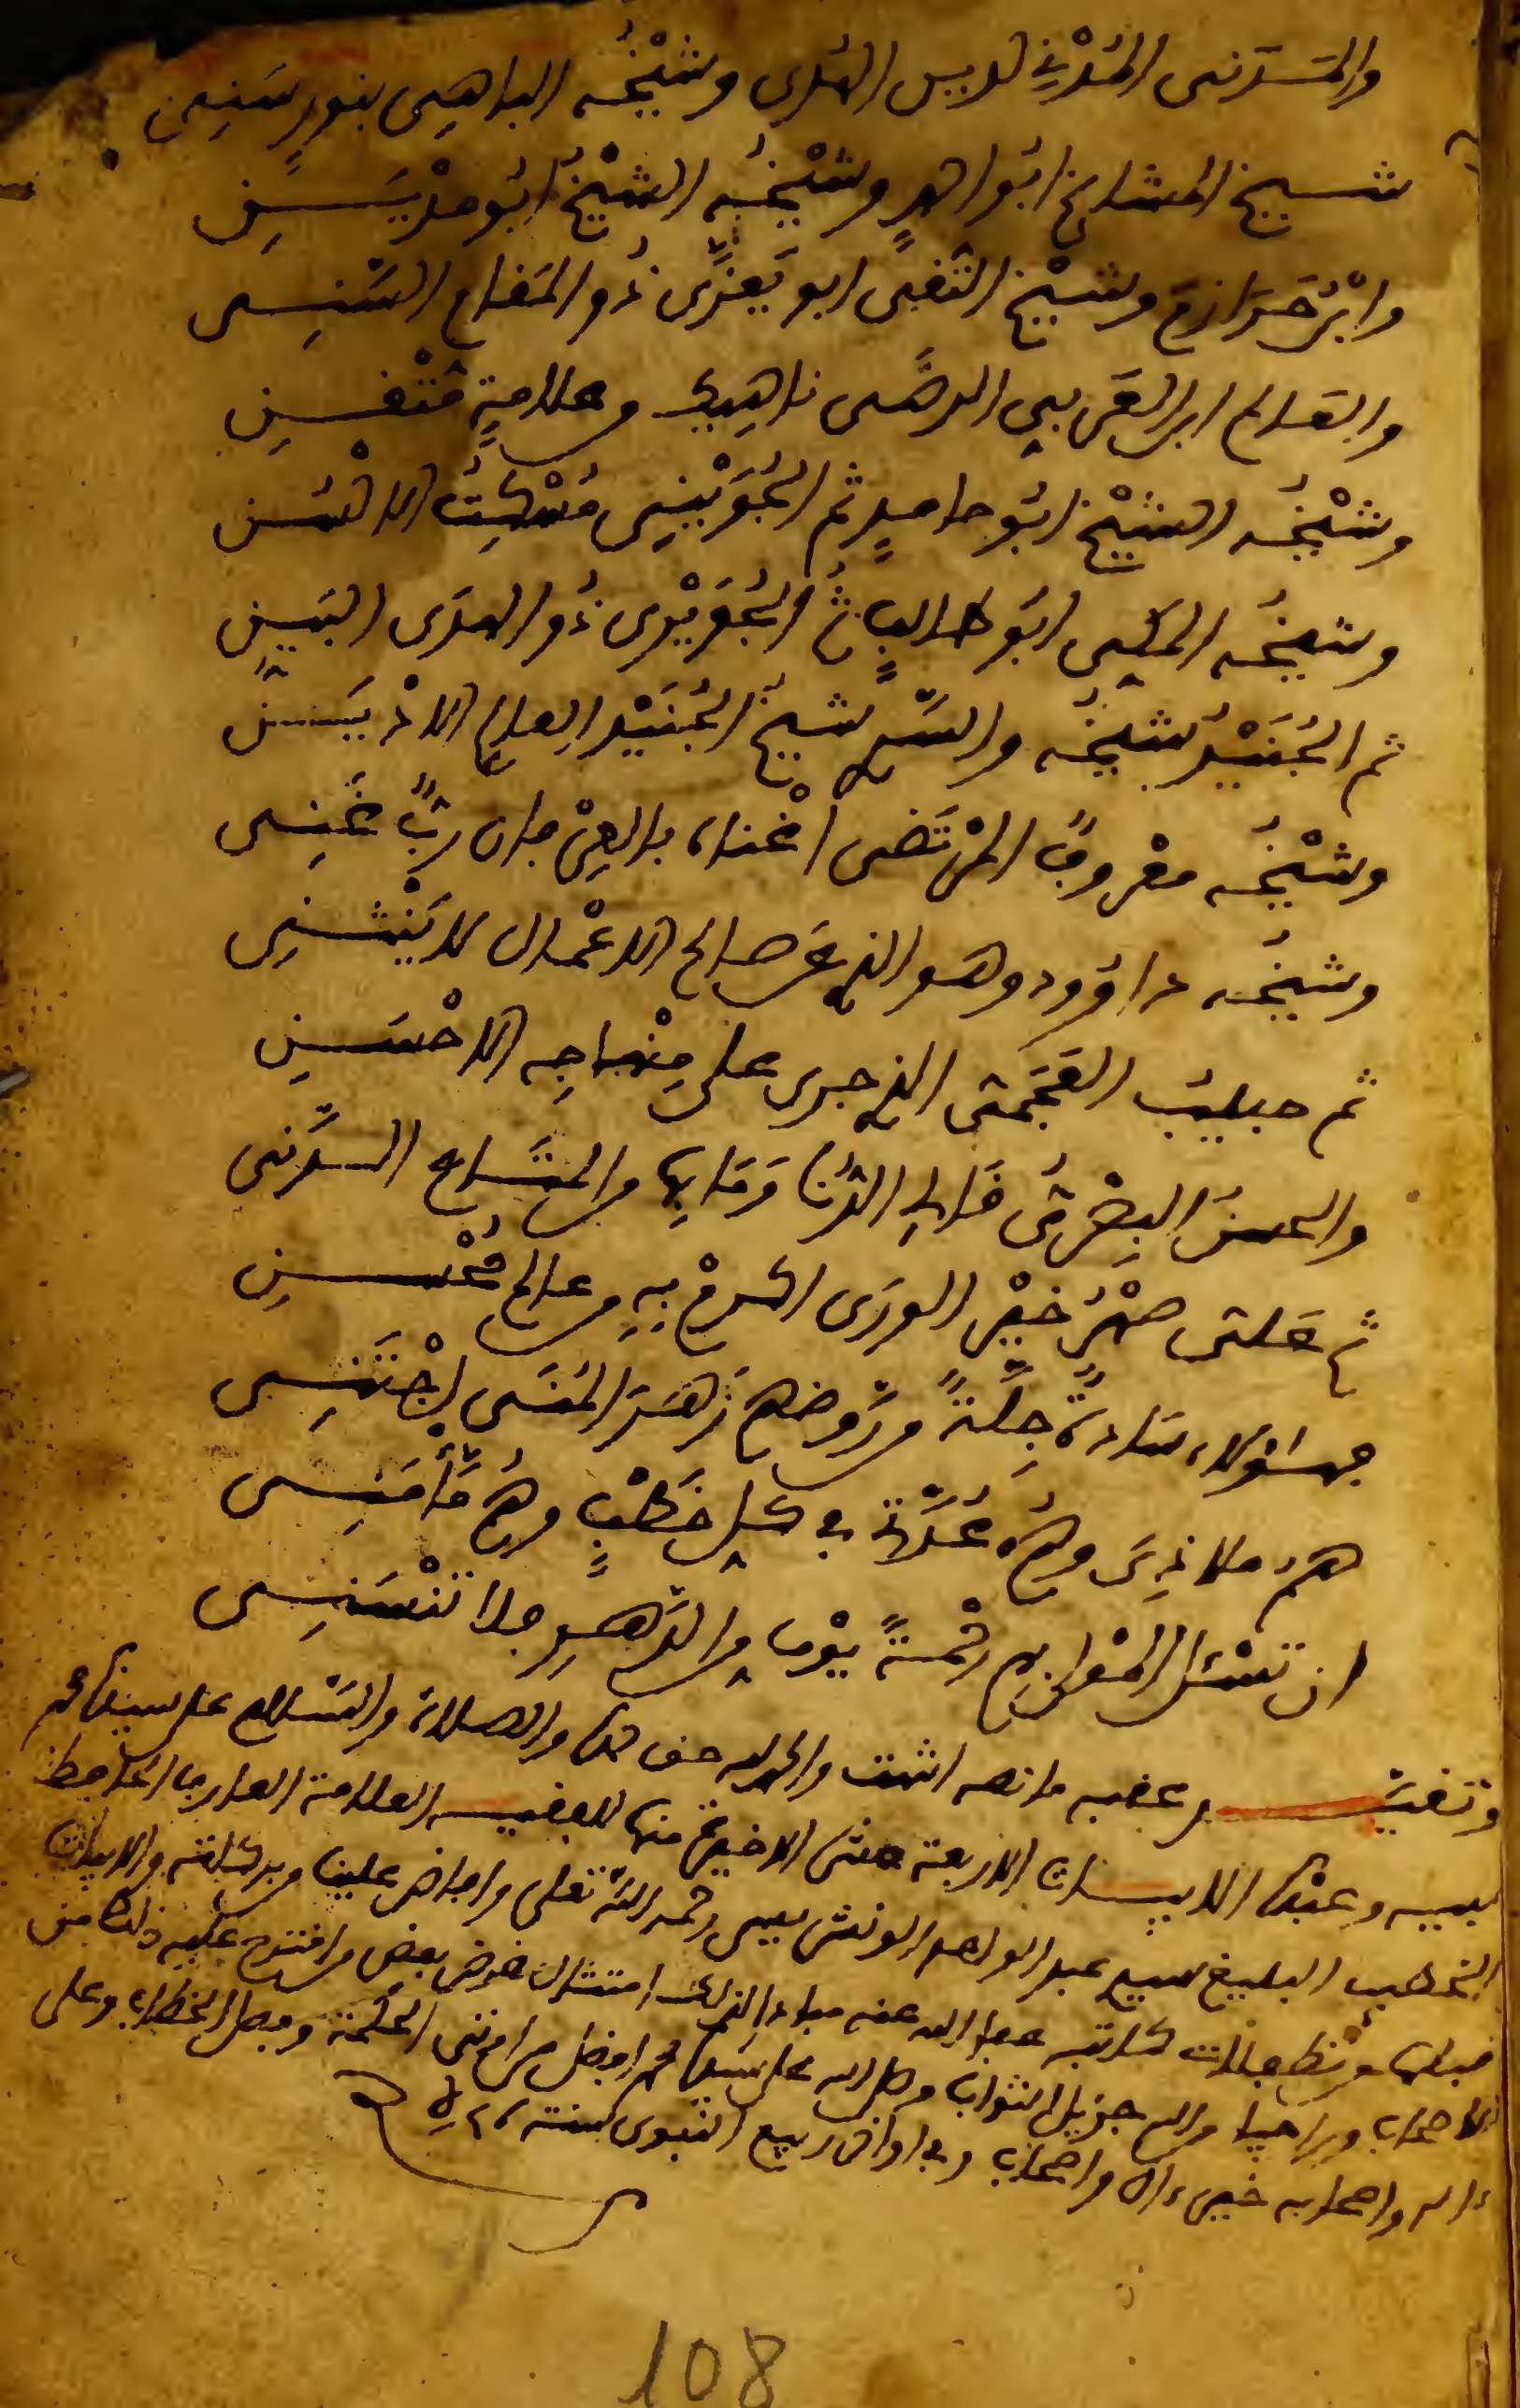 والمدني لديس الهدى وشيخه الباهي بنور سني
شيخ المشايخ ابو اهد وشيخه الشيخ ابو مدين
وابن حرازم وشيخ التفى ابو يعزى ذو المفام السني
والعالم ابن العربي الرضى ناهيك وعلامة متفن
وشيخه الشيخ ابو حامد ثم الجويني مسكت الالسن
وشيخه المكي ابو طالب ثم الجريري ذو الهدى البين
ثم الجنيد شيخه والسر شيخ الجنيد العلم الاذين
وشيخه معروف المرتضى اغناه بالعرفان رب غني
وشيخه داوود وهو الذي عن صالح الاعمال لا ينثني
ثم حبيب العجمي الذي جرى على منهاجه الاحسن
والحسن البصري فالي الدنا ومابها والمتاع الدني
ثم علي صهر خير الورى اكرم به وعالم محسن
فهؤلاء سادة جلة وروضهم زهر المنى اجتني
هم ملاذي وهم عدتي في كل خطب وهم مامني
ان تسئل المولى بهم رحمة يوما والدهر فلا تنسني
وتفيد بعفبه مانصه انتهت والحمد لله حف حمده والصلاة والسلام على سيدنا محمد
نبيه وعبده الابيات الاربعة عشر الاخيرة منها للفقيه العلامة العارف الحافظ
الخطيب البليغ سيد عبد الواحد الونشريسي رحمه الله تعلى وافاض علينا من بركاته والابيات
فبلها ونظم فلان كاتبه عفا الله عنه مبادرا لذلك امتثال غرض بعض من افترح عليه ذلك من
الاصحاب وراجيا من الله جزيل الثواب وصلى الله على سيدنا محمد افضل من اوتي الحكمة وفصل الخطاب وعلى
ءاله واصحابه خير ءال واصحاب وفي اواخر ربيع النبوي سنة
108